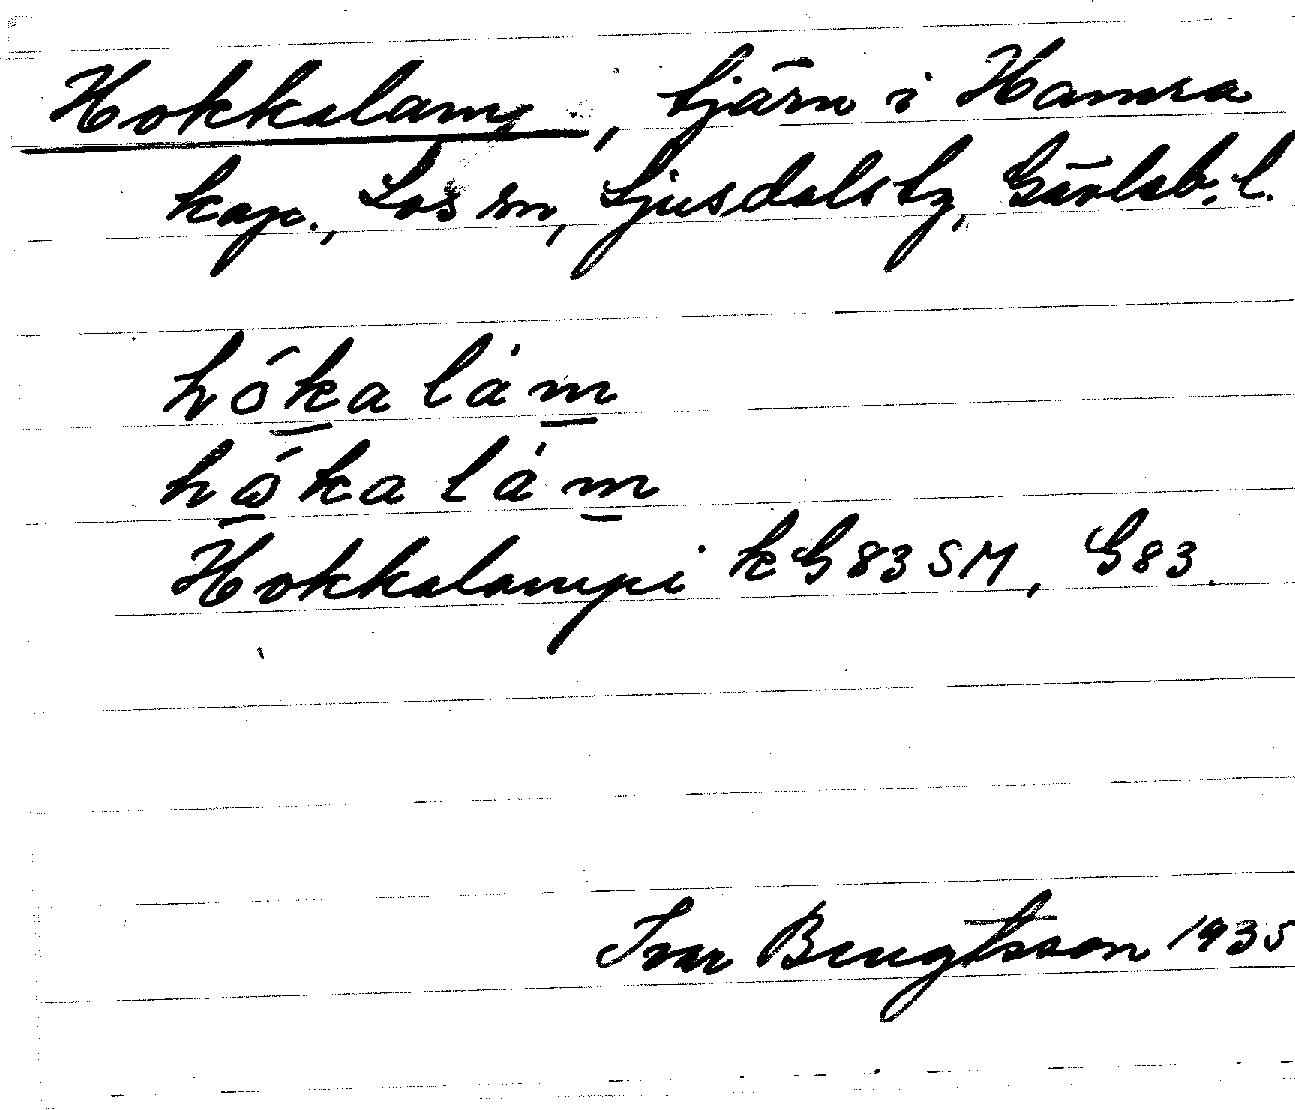 Hokkalam, tjärn i Hamra
kap., Los sn, Ljusdals tg, Gävleb. l.
hókalàm
hókalàm
Hokkalampi kG83SM, G83.
Ivar Bengtsson 1935